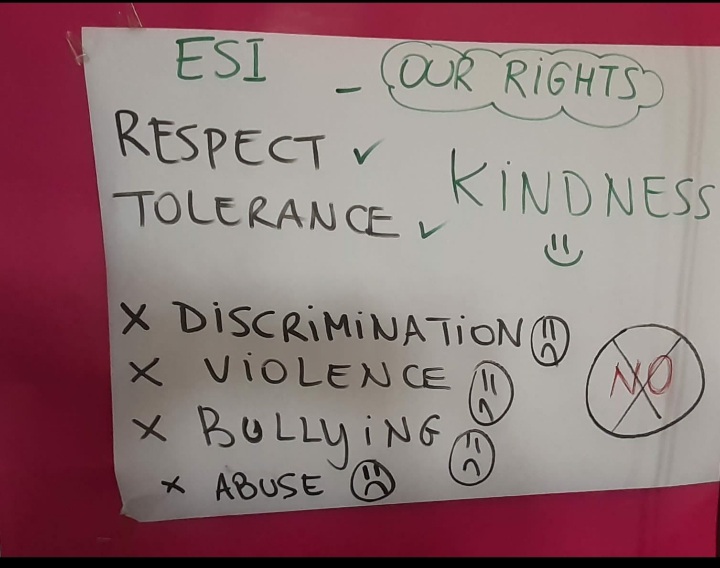 ESI - OUR RIGHTS
RESPECT ✓
KiNDNESS
TOLERANCE ✓
X DiSCRiMiNATiON
X ViOLENCE
X BULLYiNG
X ABUSE
NO